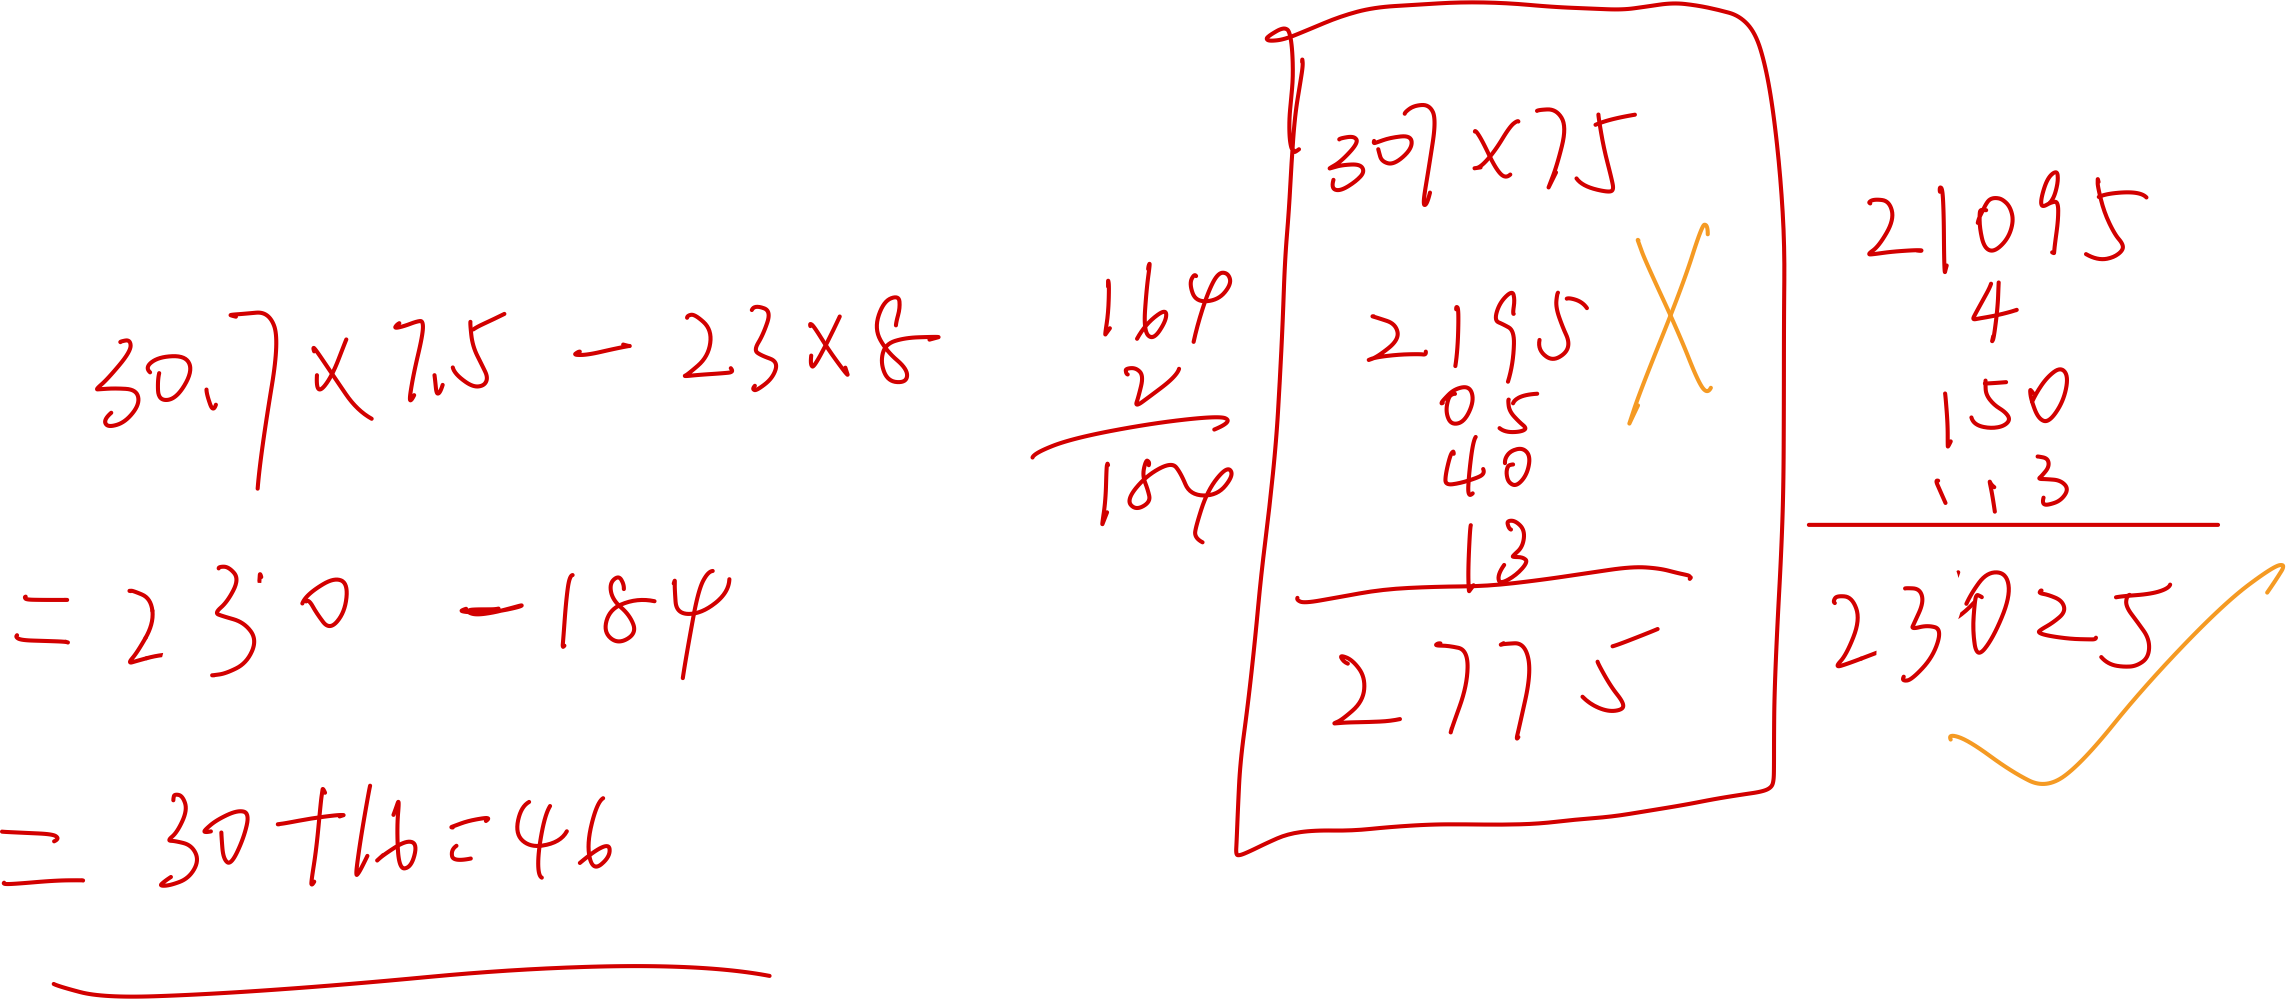 30.7×7.5-23×8
=230-184
=30+16=46
164
2
184
307×75
2195
05
40
13
2775
21095
4
150
113
23025